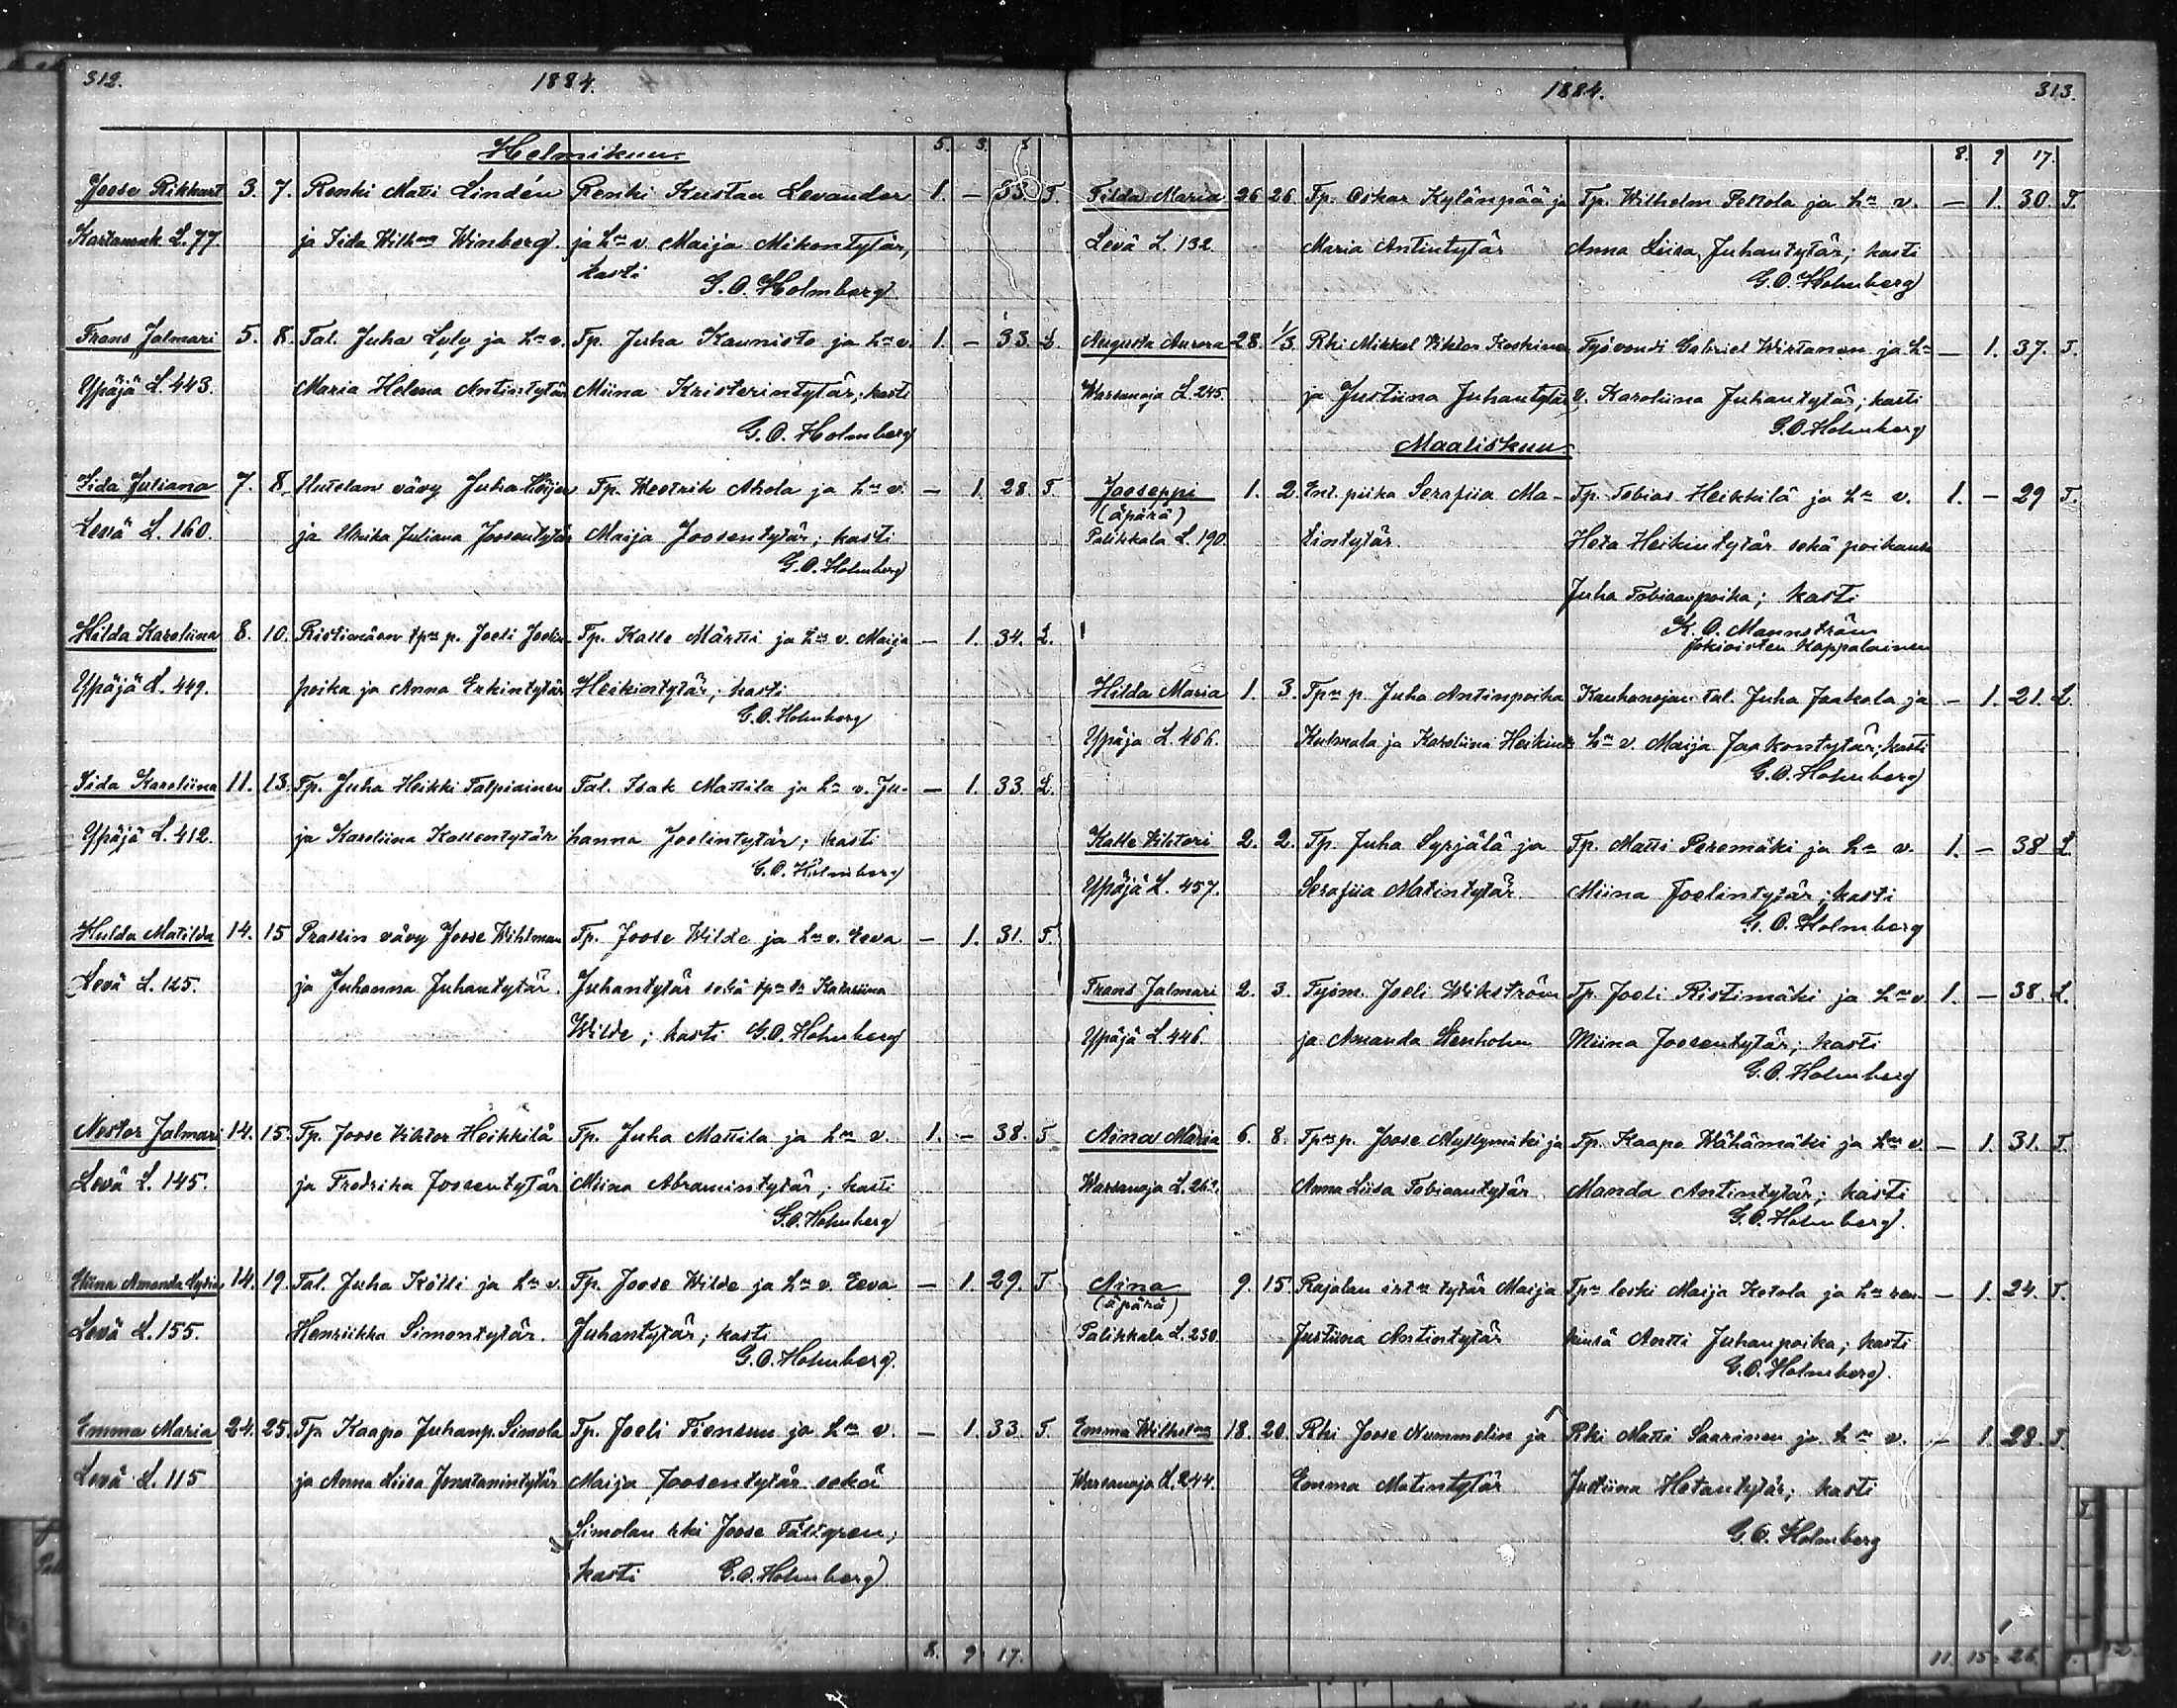 312.
1884.
Helmikuu.
5. 3. 8
Joose Rikhart 3. 7. Renki Matti Lindén Renki Kustaa Levander 1. — 33. T.
Kartanonk. L. 77 ja Iida Wilhna Winberg. ja hn v. Maija Mikontytär,
kasti G. O. Holmberg.
Frans Jalmari 5. 8. Tal. Juha Lyly ja hn v. Tp. Juha Kaunisto ja hn v. 1. — 33. L.
Ypäjä L. 443. Maria Helena Antintytär Miina Kristerintytär; kasti
G. O. Holmberg
Iida Juliana 7. 8. vävy Juha ja hn v. — 1. 28. T
Levä L. 160. ja Ulrika Juliana Joosentytär Maija Joosentytär; kasti
G. O. Holmberg
Hilda Karoliina 8. 10. Ristimäen tpn p. Joeli Tp. Kalle Märtti ja hn v. Maija — 1. 34. L.
Ypäjä L. 449. poika ja Anna Erkintytär Heikintytär; kasti
G. O. Holmberg
Iida Karoliina 11. 13. Tp. Juha Heikki Talpiainen Tal. Isak Mattila ja hn v. Ju- — 1. 33. L.
Ypäjä L. 412. ja Karoliina Kallentytär hanna Joelintytär; kasti
G. O. Holmberg
Hulda Matilda 14. 15 vävy Joose Wihlman Tp. Joose Wilde ja hn v. Eeva — 1. 31. T.
Levä L. 125. ja Juhanna Juhantytär. Juhantytär sekä tpn tr Katariina
Wilde; kasti G. O. Holmberg
Nestor Jalmari 14. 15. Tp. Joose Viktor Heikkilä Tp. Juha Mattila ja hn v. 1. — 38. T
Levä L. 145. ja Fredrika Joosentytär Miina Abramintytär; kasti
G. O. Holmberg
Miina Amanda Lydia 14. 19. Tal. Juha Kölli ja hn v. Tp. Joose Wilde ja hn v. Eeva — 1. 29. T
Levä L. 155. Henriikka Simontytär. Juhantytär; kasti
G. O. Holmberg.
Emma Maria 24. 25. Tp. Kaapo Juhanp. Simola Tp. Joeli Tiensuu ja hn v. — 1. 33. T.
Levä L. 115 ja Anna Liisa Jonatanintytär Maija Joosentytär sekä
Simolan rki Joose Fältgren;
kasti G. O. Holmberg
8. 9. 17.
1884.
313.
8. 9 17.
Tilda Maria 26 26. Tp. Oskar Kylänpää ja Tp. Wilhelm Peltola ja hn v. — 1. 30. T.
Levä L. 132. Maria Antintytär Anna Liisa Juhantytär; kasti
G. O. Holmberg
Augusta Aurora 28. 1/3. Rki Mikkel Viktor Koskinen Työvouti Gabriel Wirtanen ja hn — 1. 37. T.
Warsanoja L. 245. ja Justiina Juhantytär v. Karoliina Juhantytär; kasti
G. O. Holmberg
Maaliskuu
Jooseppi 1. 2. Ent. piika Serafiia Ma- Tp. Tobias Heikkilä ja hn v. 1. — 29 T.
(äpärä)
Palikkala L. 190. tintytär. Heta Heikintytär sekä poikansa
Juha Tobiaanpoika; kasti
K. O. Mannström
Jokioisten Kappalainen
Hilda Maria 1. 3. Tpn p. Juha Antinpoika Kauhanojan tal. Juha Jaakola ja — 1. 21. L.
Ypäjä L. 466. Kulmala ja Karoliina Heikint. hn v. Maija Jaakontytär; kasti
G. O. Holmberg
Kalle Vihtori 2. 2. Tp. Juha Syrjälä ja Tp. Matti Peremäki ja hn v. 1. — 38 L.
Ypäjä L. 457. Serafiia Matintytär. Miina Joelintytär; kasti
G. O. Holmberg
Frans Jalmari 2. 3. Työm. Joeli Wikström Tp. Joeli Ristimäki ja hn v. 1. — 38. L.
Ypäjä L. 446. ja Amanda Stenholm Miina Joosentytär; kasti
G. O. Holmberg
Aina Maria 6. 8. Tpn p. Joose Myllymäki ja Tp. Kaapo Wähämäki ja hn v. — 1. 31. T.
Warsanoja L. Anna Liisa Tobiaantytär Manda Antintytär; kasti
G. O. Holmberg.
Aina 9. 15. Rajalan tytär Maija Tpn leski Maija Ketola ja hn ren- — 1. 24. T.
(äpärä)
Palikkala L. 230. Justiina Antintytär kinsä Antti Juhanpoika; kasti
G. O. Holmberg.
Emma Wilhelma 18. 20. Rki Joose Nummelin ja Rki Matti Saarinen ja hn v. — 1. 28. T.
Warsanoja L. 244. Emma Matintytär Justiina Hetantytär; kasti
G. O. Holmberg
11. 15. 26.